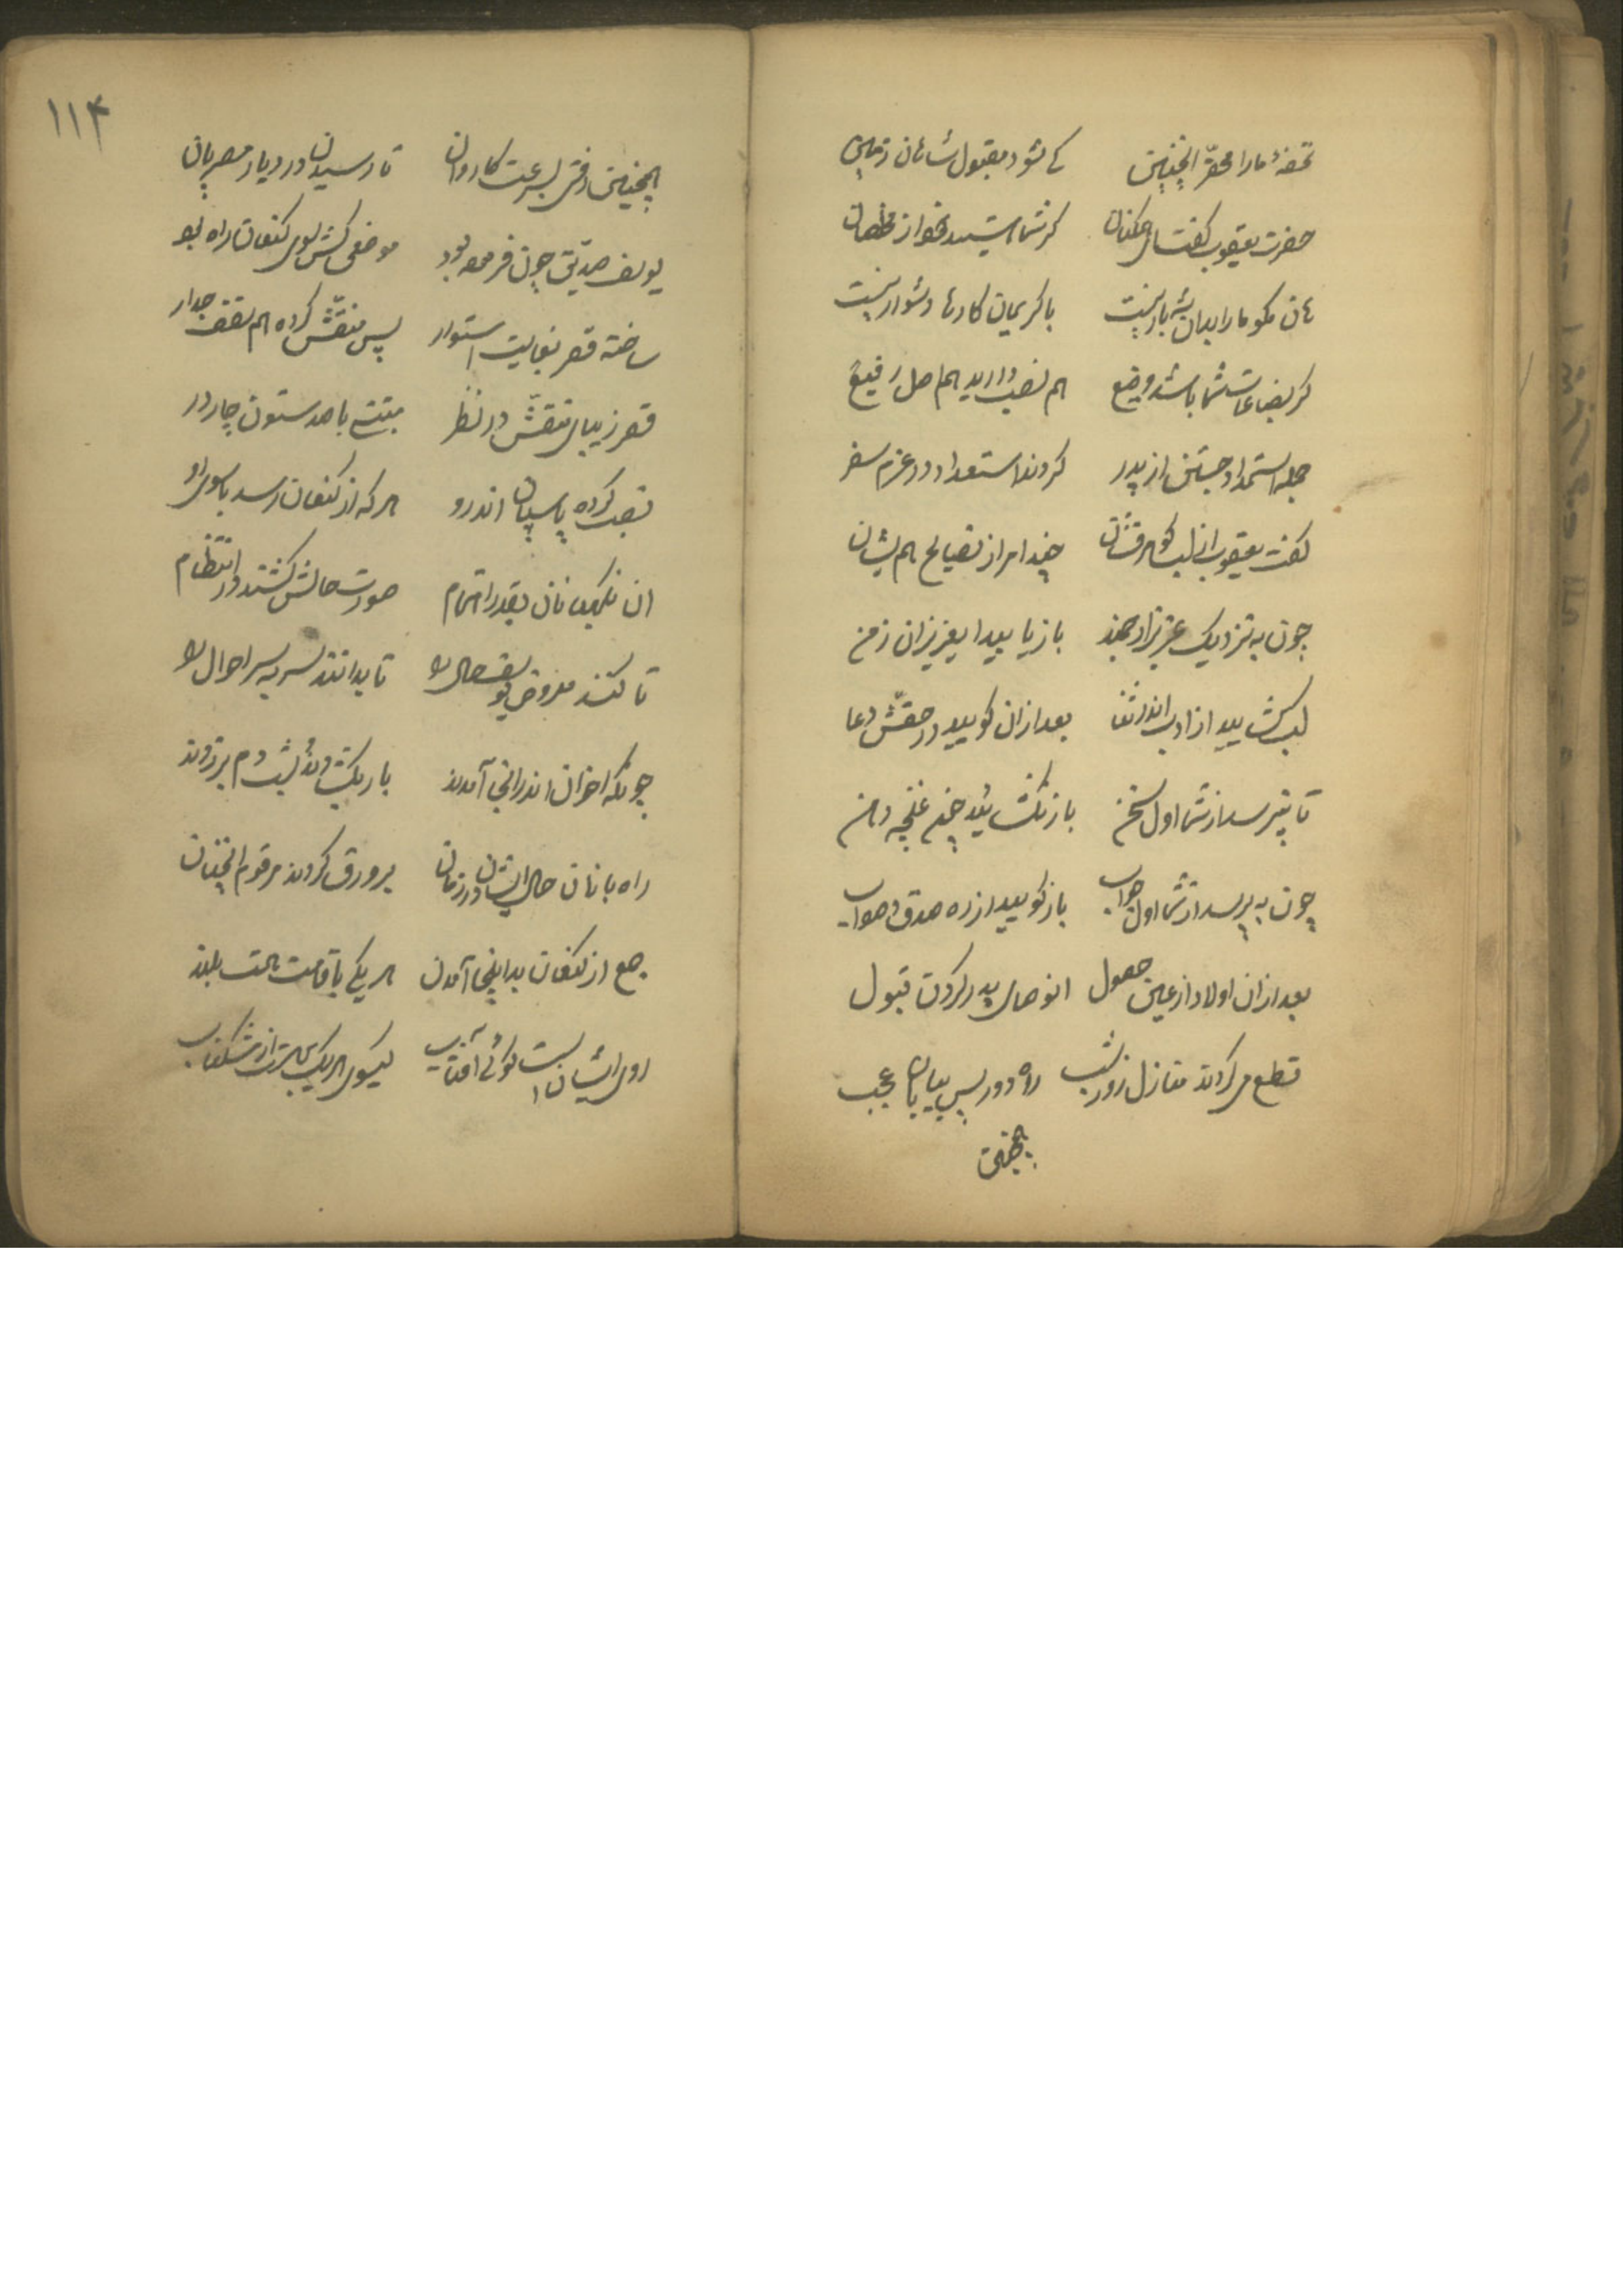 تحفهٔ ما را محقّر اینچنین کی شود مقبول شاهان زمین
حضرت یعقوب گفت گر شما هستید
هان مگو ما را بدان شه بار نیست با کریمان کارها دشوار نیست
گر بضاعات شما باشد وضیع هم نصب دارید هم اصل رفیع
جمله استمداد جستن از پدر کردند استعداد در عزم سفر
گفت یعقوب از لب گوهرفشان چند امر از نصایح هم بشان
چون به نزدیک عزیز ارجمند باز یابید ای عزیزان زمن
لب گشایید از ادب اندر ثنا بعد ازان گویید در حقّش دعا
تا نپرسد از شما اول سخن باز نگشائید چون غنچه دهن
چون به پرسد از شما اول جواب باز گویید از ره صدق و صواب
بعد ازان اولاد از عین حصول پدر کردن قبول
قطع می کردند منازل روز شب راه دور پس بیابان عجب
همچنین
۱۱۴
همچنین رفتی بسرعت کاروان تا رسیدن در دیار مصریان
یوسف صدیق چون فرموده بود موضعی کش سوی کنعان راه بود
ساخته قصر بغایت استوار پس منقّش کرده هم سقف جدار
قصر زیبای منقّش در نظر با صد ستون چار در
نصب کرده پاسبان اندرو هر که از کنعان رسد با سوی او
ان نگهبانان بقدر اهتمام صورت حالش کشند در انتظام
تا کنند معروض یوسف حال او تا بدانند سر به سر احوال او
چونکه اخوان اندر انجا آمدند بار بگشودند و پشت دم بر زدند
راهبانان حال ایشان در زمان بر ورق کردند مرقوم انچنان
جمع از کنعان بداینجا آمدن هر یکی با قامت همت بلند
روی ایشان است گوئی آفتاب گیسوی هر یک